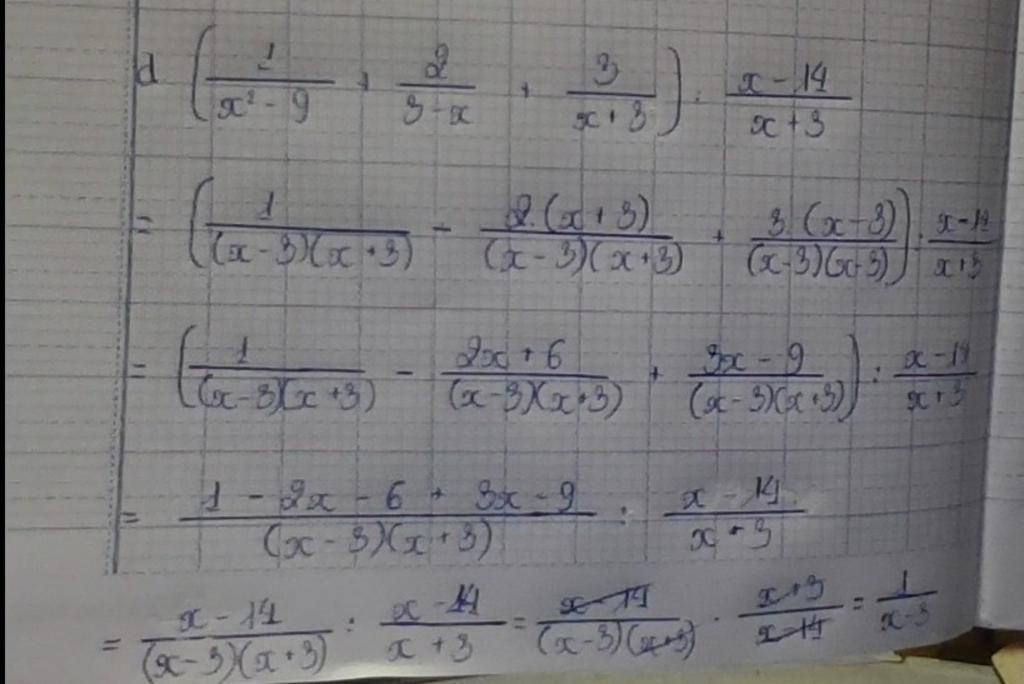 d (1/(x² - 9) + 2/(3 - x) + 3/(x + 3)) : (x - 14)/(x + 3)
= (1/((x - 3)(x + 3)) - 2.(x + 3)/((x - 3)(x + 3)) + 3.(x - 3)/((x - 3)(x + 3))) : (x - 14)/(x + 3)
= (1/((x - 3)(x + 3)) - (2x + 6)/((x - 3)(x + 3)) + (3x - 9)/((x - 3)(x + 3))) : (x - 14)/(x + 3)
= (1 - 2x - 6 + 3x - 9)/((x - 3)(x + 3)) : (x - 14)/(x + 3)
= (x - 14)/((x - 3)(x + 3)) : (x - 14)/(x + 3) = (x - 14)/((x - 3)(x + 3)) . (x + 3)/(x - 14) = 1/(x - 3)